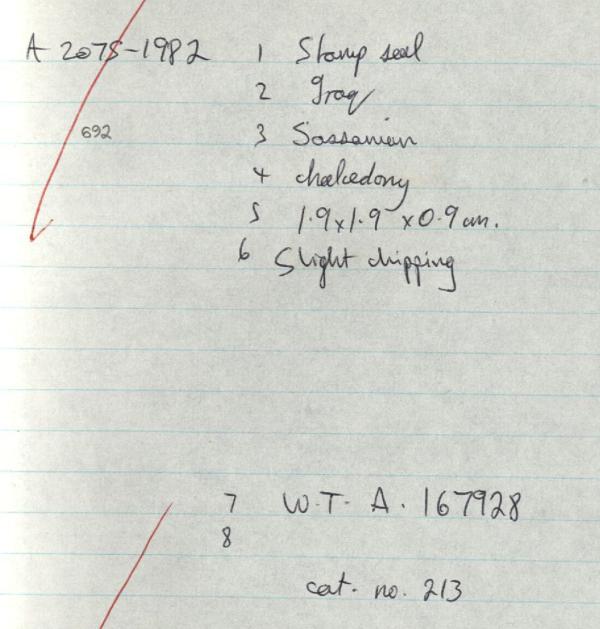 A 2078-1982 1 Stamp seal
2 Iraq
692
3 Sassanian
4 chalcedony
5 1.9 x 1.9 x 0.9 cm.
6 Slight chipping
7 W.T. A. 167928
8
cat. no. 213